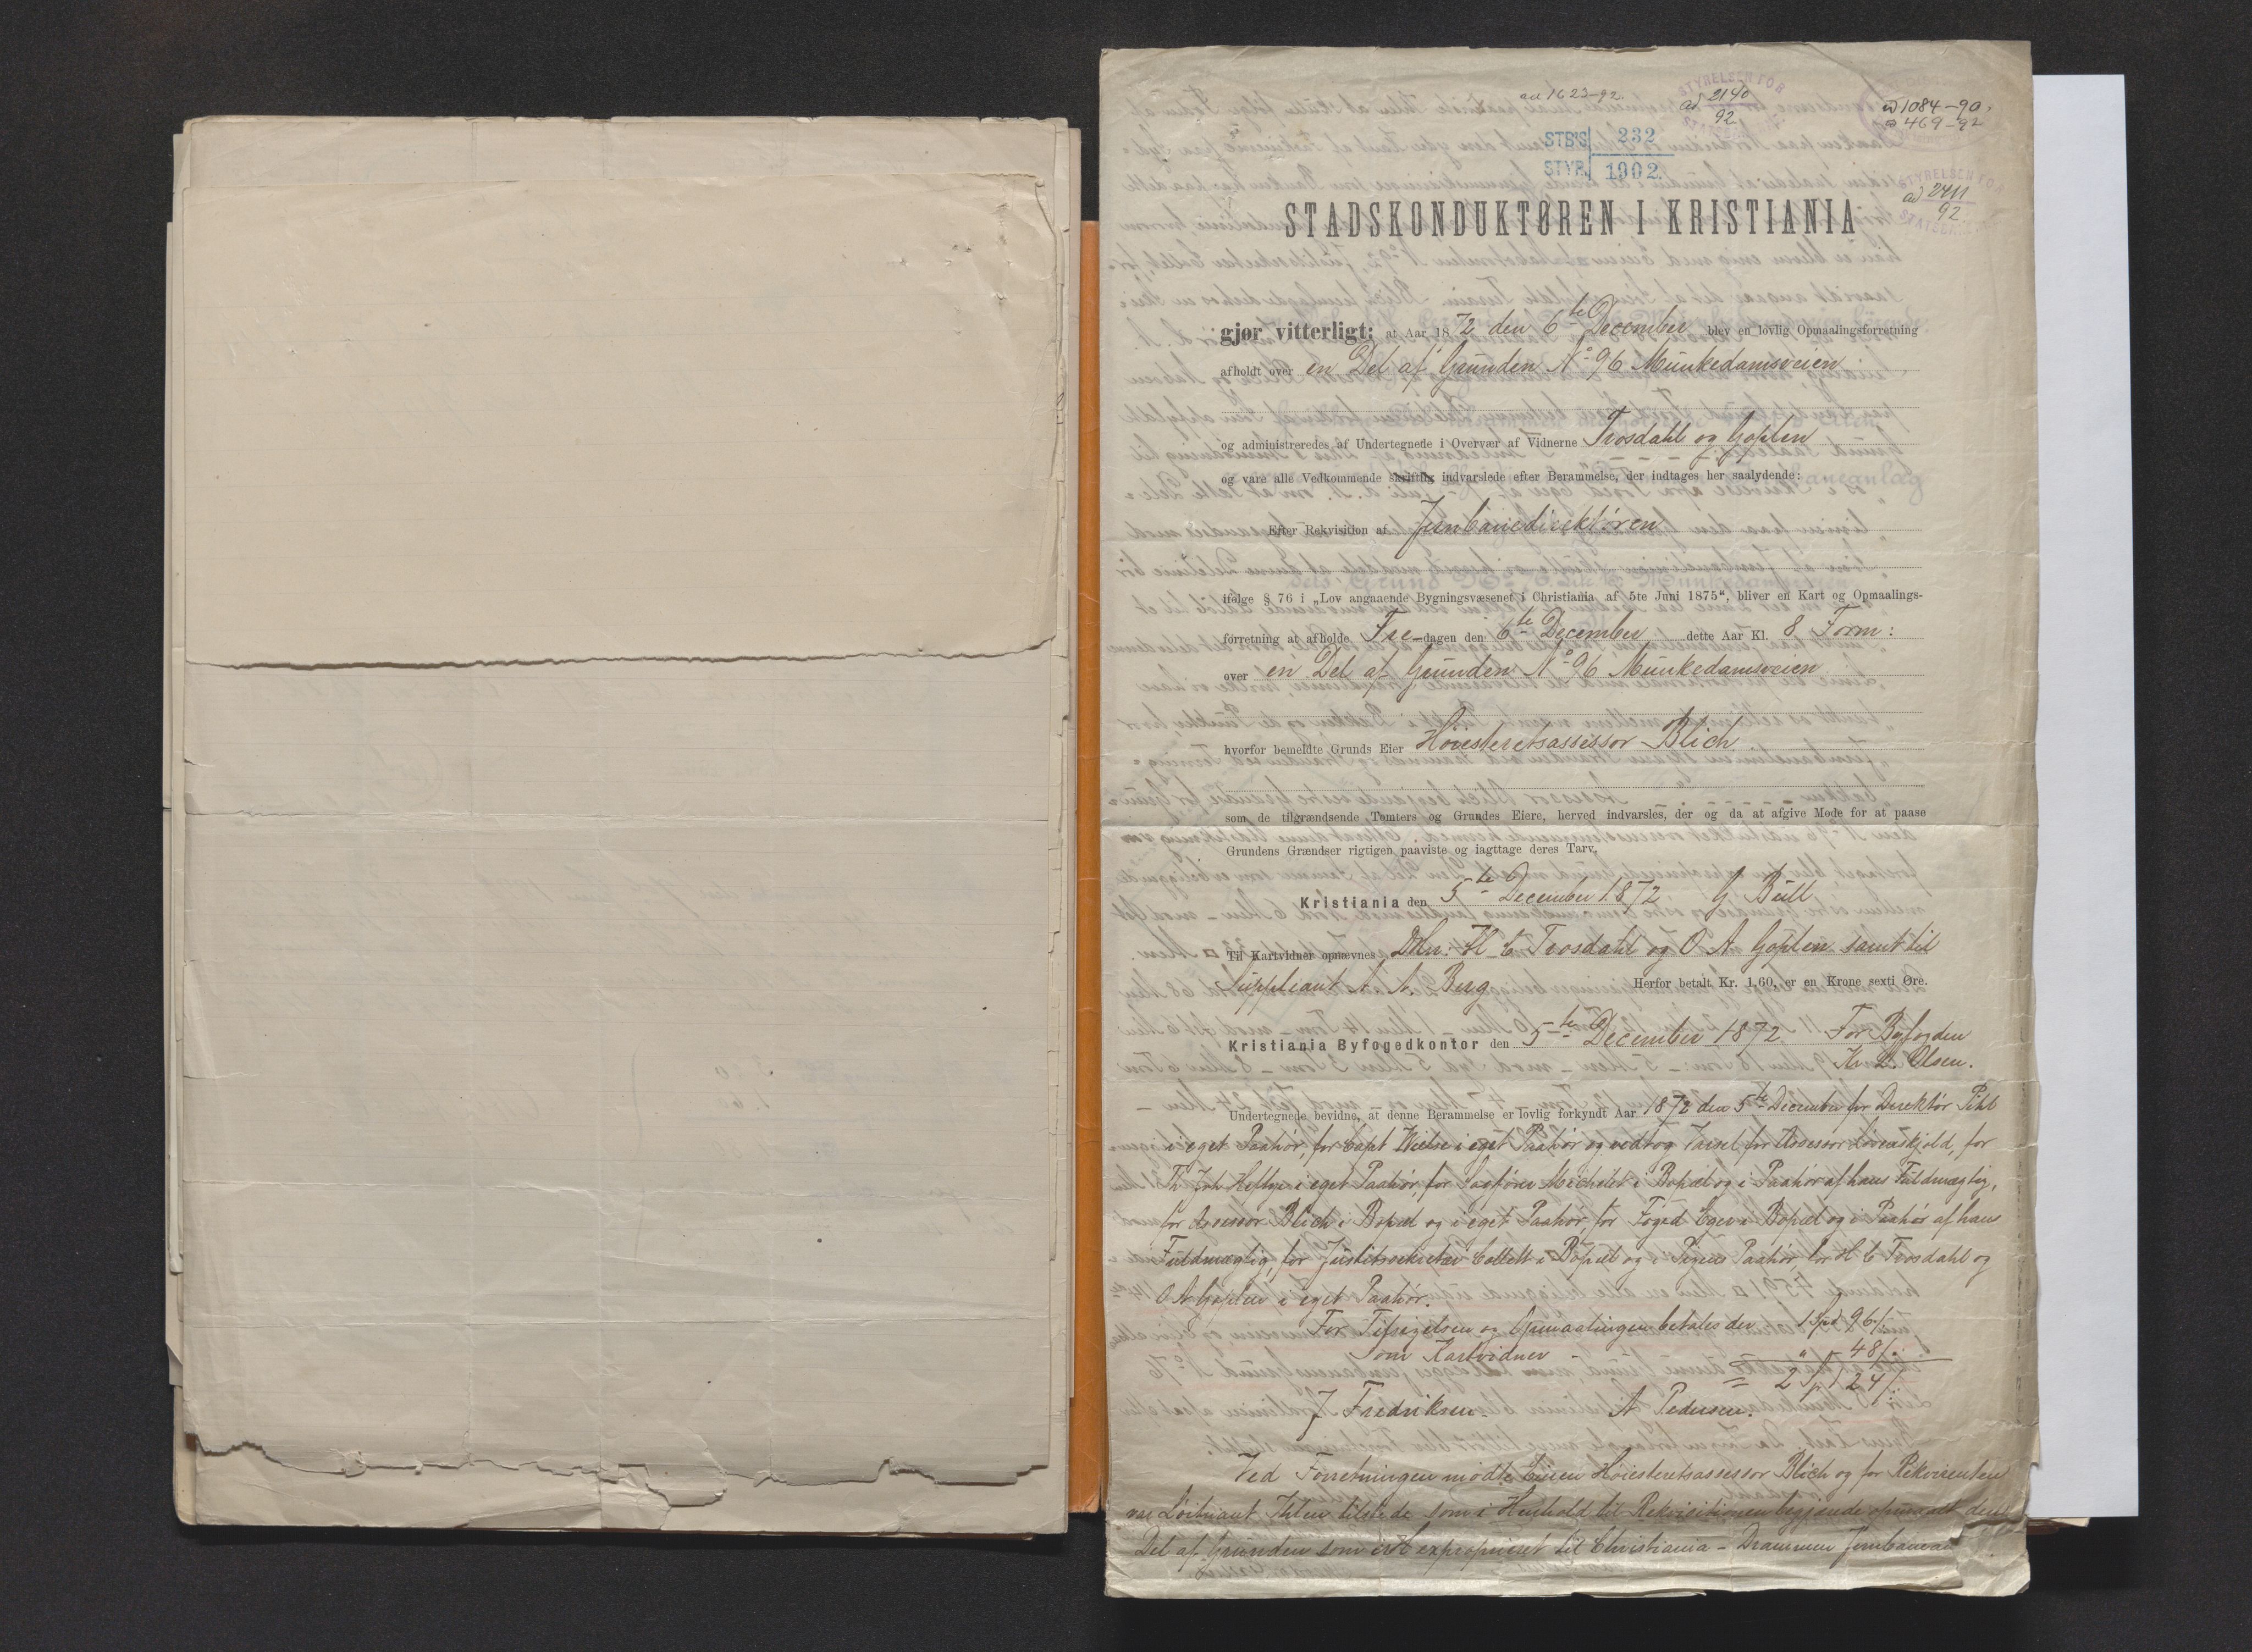 ad 1623-92.
STYRELSEN FOR
ad 2140
92
ad 1084-90.
ad 469-92
STB'S 232
STYR. 1902.
STYRELSEN FOR
ad 2411
92
STADSKONDUKTØREN I KRISTIANIA
gjør vitterligt: at Aar 1872 den 6te December blev en lovlig Opmaalingsforretning
afholdt over en Del af Grunden No 96 Munkedamsveien
og administreredes af Undertegnede i Overvær af Vidnerne Trosdahl og Goplen
og vare alle Vedkommende skriftlig indvarslede efter Berammelse, der indtages her saalydende:
Efter Rekvisition af Jernbanedirektøren
ifølge § 76 i „Lov angaaende Bygningsvæsenet i Christiania af 5te Juni 1875“, bliver en Kart og Opmaalings-
forretning at afholde Fre-dagen den 6te December dette Aar Kl. 8 Form:
over en Del af Grunden No 96 Munkedamsveien
hvorfor bemeldte Grunds Eier Høiesteretsassessor Blich
som de tilgrændsende Tomters og Grundes Eiere, herved indvarsles, der og da at afgive Møde for at paase
Grundens Grændser rigtigen paaviste og iagttage deres Tarv.
Kristiania den 5te December 1872 G Bull
Til Kartvidner opnævnes DHrr. H C Trosdahl og O A Goplen samt til
Suppleant A. A. Berg Herfor betalt Kr. 1,60, er en Krone sexti Øre.
Kristiania Byfogedkontor den 5te December 1872 For Byfogden
Kr L. Olsen.
Undertegnede bevidne, at denne Berammelse er lovlig forkyndt Aar 1872 den 5te December for Direktør Pihl
i eget Paahør, for Capt Wielse i eget Paahør og vedtog Varsel for Assessor Løvenskjold, for
Th Joh Heftye i eget Paahør, for Sagfører Michelet i Bopæl og i Paahør af hans Fuldmægtig,
for Assessor Blich i Bopæl og i eget Paahør, for Foged Eger i Bopæl og i Paahør af hans
Fuldmægtig, for Justitssekretær Collett i Bopæl og i Pigens Paahør, for H C Trosdahl og
O A Goplen i eget Paahør.
For Tilsigelsen og Opmaalingen betales der 1 Spd 96 /:
Som Kartvidner - " - 48 /:
= 2 Spd 24 /:
J Fredriksen. A Pedersen.
Ved Forretningen mødte Eieren Høiesteretsassessor Blich og for Rekvirenten
var Løitnant tilstede som i Henhold til Rekvisitionen begjærede opmaalt den
Del af Grunden som er exproprieret til Christiania - Drammen Jernbane